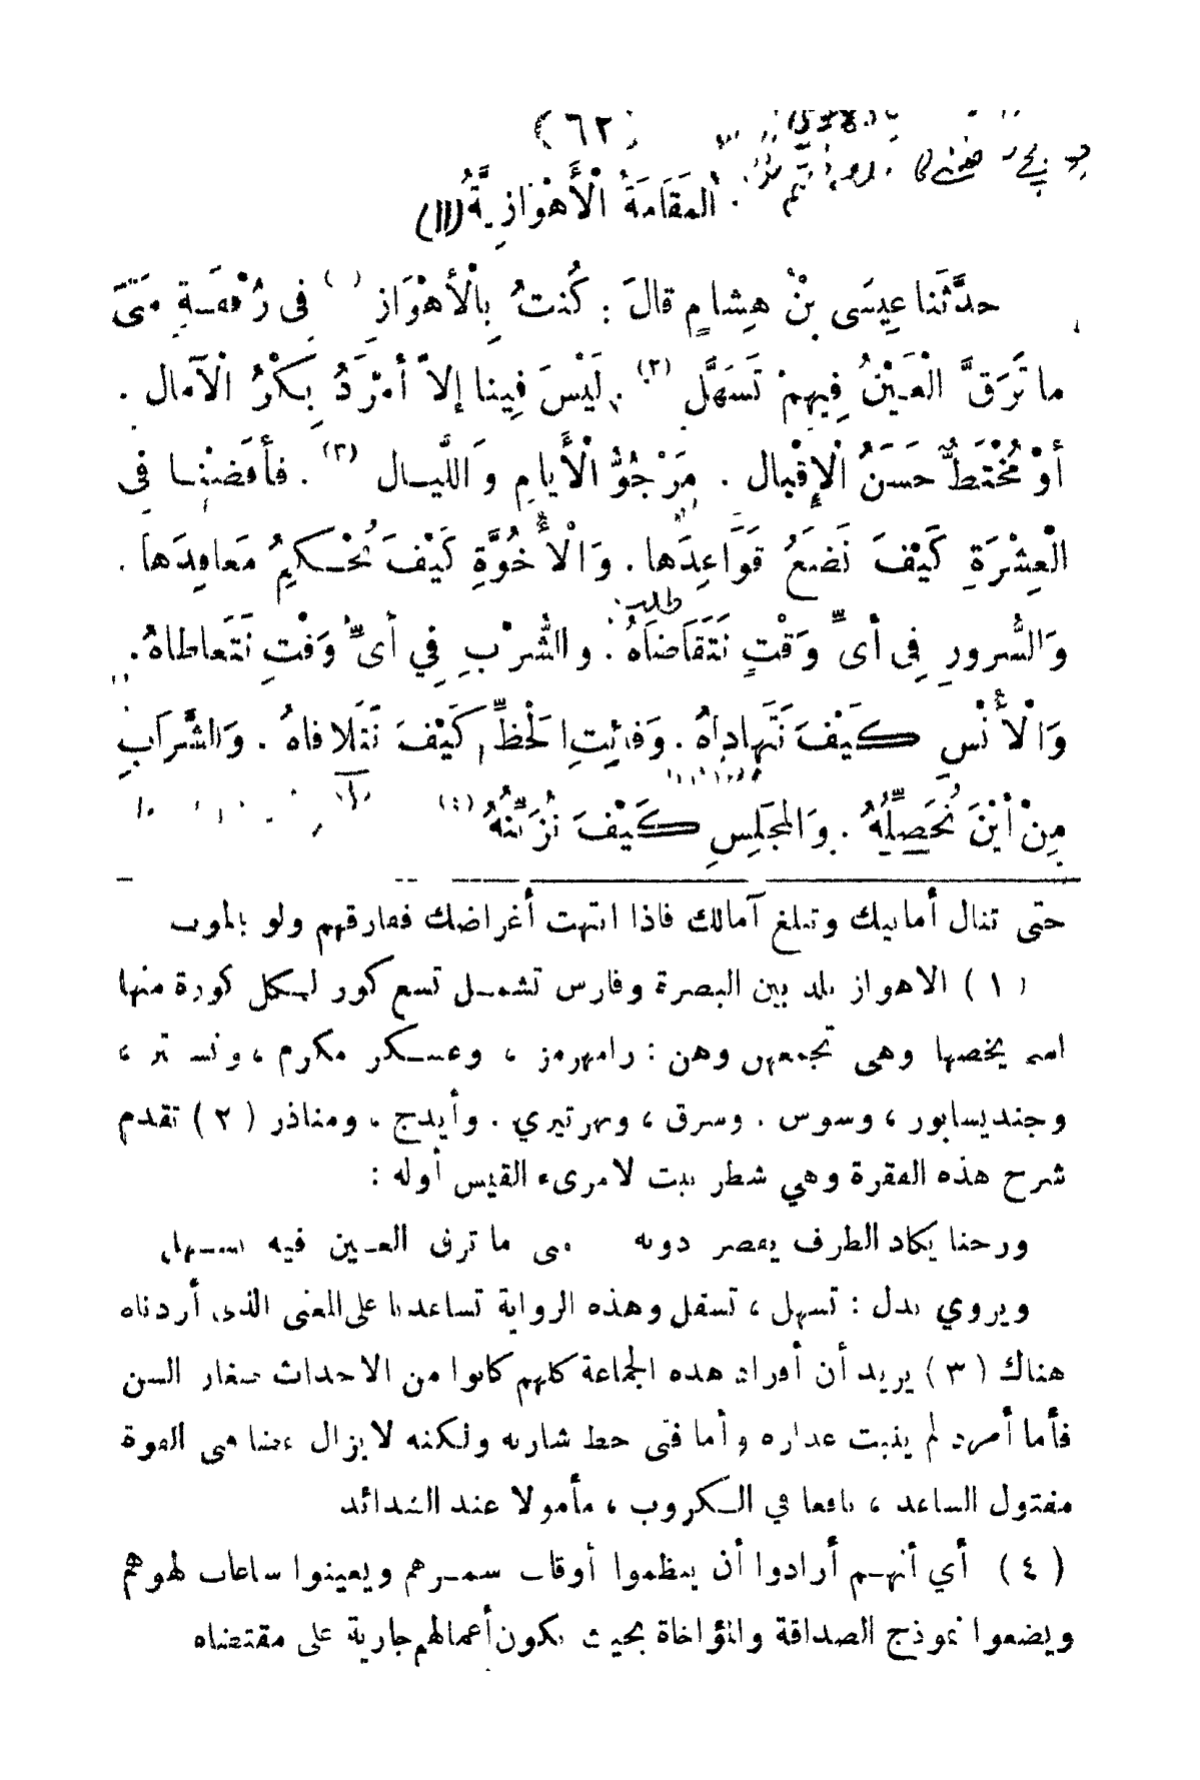 (٦٢)
المَقَامَةُ الْأَهْوَازِيَّةُ (١١)
حدَّثَنا عِيسَى بْنُ هِشامٍ قالَ : كُنتُ بِالْأَهْوَازِ ( ) فِى رُفْقَةٍ مَتَى
ما تَرَقَّ الْعَيْنُ فِيهِمْ تَسَهَّلِ (٢) . لَيْسَ فِينا إلاَّ أمْرَدُ بِكْرُ الْآمال .
أوْ مُخْتَطٌّ حَسَنُ الْإِقْبال . مَرْجُوُّ الْأَيامِ وَاللَّيـال (٣) . فأفَضْنـا فى
الْعِشْرَةِ كَيْفَ نَضَعُ قَوَاعِدَها . وَالْأُخُوَّةِ كَيْفَ نُحْـكِمُ مَعاقِدَها .
طلب
وَالسُّرورِ فِى أىِّ وَقْتٍ نَتَقَاضَاهُ . والشُّرْبِ فِي أىِّ وَقْتٍ نَتَعاطاهُ .
وَالْأُنْسِ كَيْفَ نَتَهاداهُ . وَفائِتِ الْحَظِّ كَيْفَ نَتَلافاهُ . وَالشَّرَابِ
مِنْ أيْنَ نُحَصِّلُهُ . وَالمَجلِسِ كَيْفَ نُزَيِّنُهُ (٤)
حتى تنال أمانيك وتبلغ آمالك فاذا انتهت أغراضك ففارقهم ولو بالموت
(١) الاهواز بلد بين البصرة وفارس تشمـل تسع كور لـكل كورة منها
اسم يخصها وهى تجمعهن وهن : رامهرمز ، وعسـكر مكرم ، وتسـتر ،
وجنديسابور ، وسوس . وسرق ، ونهرتيري . وأيدج . ومناذر (٢) تقدم
شرح هذه الفقرة وهي شطر بيت لامرىء القيس أوله :
ورحنا يكاد الطرف يقصر دونه متى ما ترق العـين فيه تسـهل
ويروي بدل : تسهل ، تسفل وهذه الرواية تساعدنا على المعنى الذى أردناه
هناك (٣) يريد أن أفراد هذه الجماعة كلهم كانوا من الاحداث صغار السن
فأما أمرد لم ينبت عذاره وأما فتى خط شاربه ولكنه لا يزال غضا فى القوة
مفتول الساعد ، نافعا في الـكروب ، مأمولا عند الشدائد
(٤) أي أنهـم أرادوا أن ينظموا أوقات سمـرهم ويعينوا ساعات لهوهم
ويضعوا نموذج الصداقة والمؤاخاة بحيث تكون أعمالهم جارية على مقتضاه